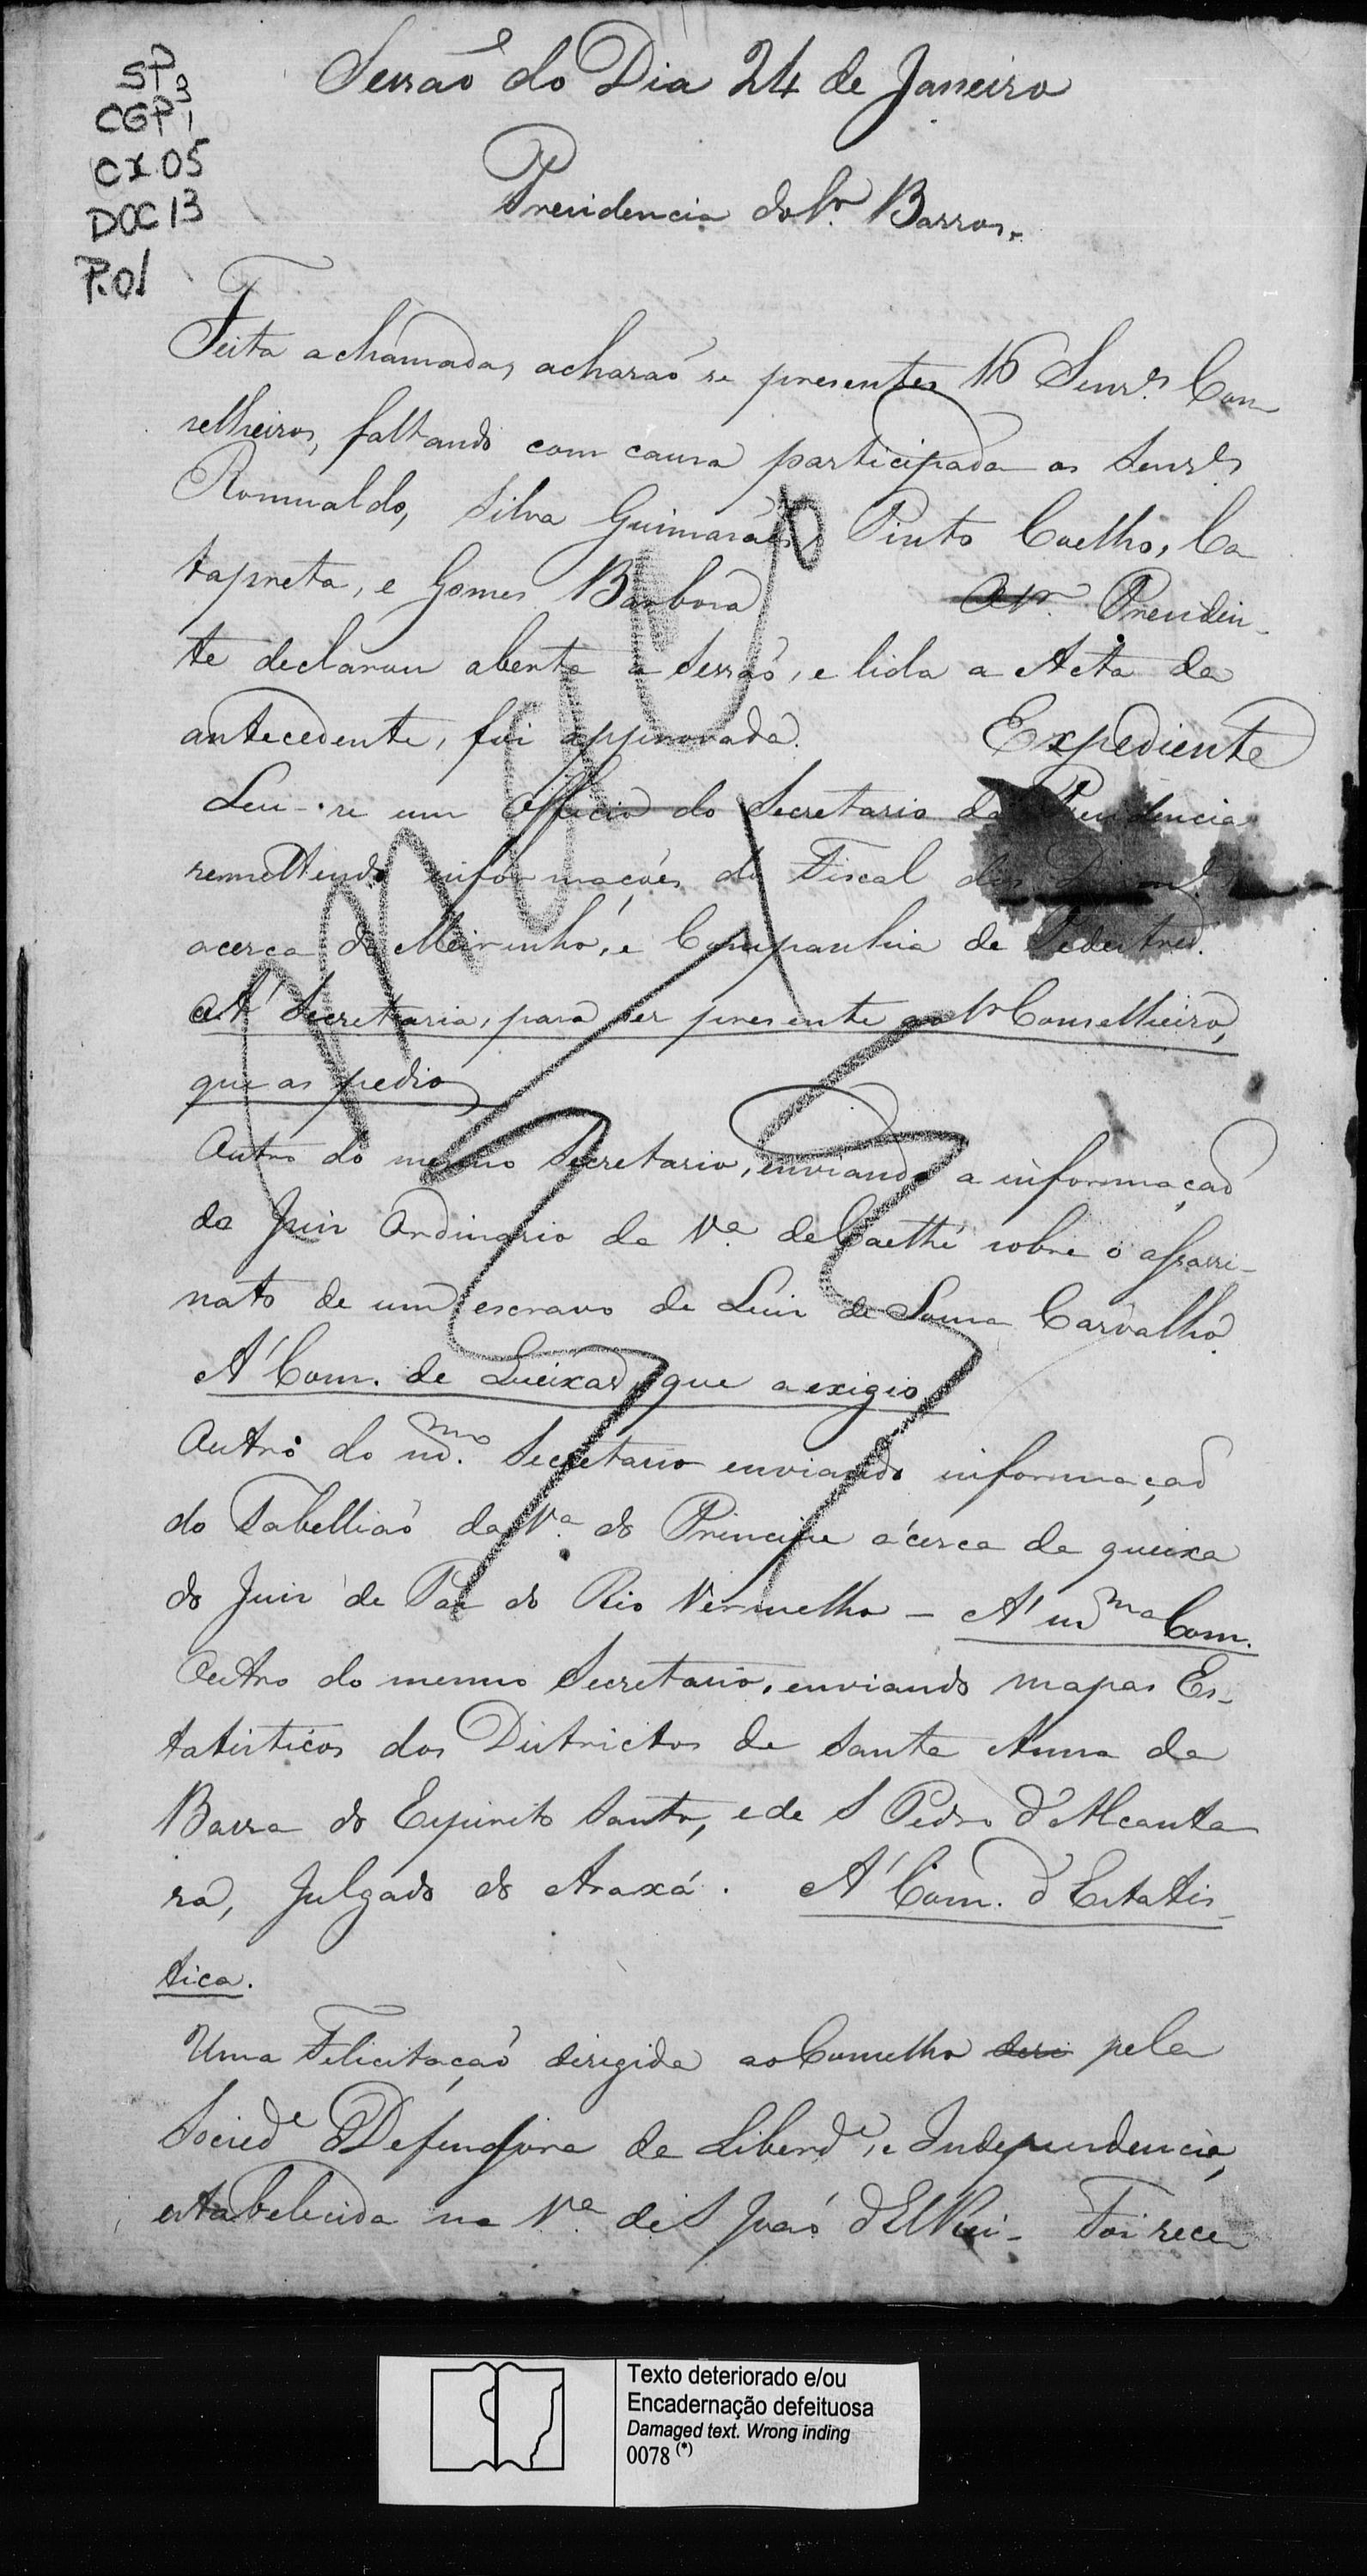 SP
CGP 3
1
CX.05
DOC 13
P.01
Sessaõ do Dia 24 de Janeiro
Presidencia do Sr. Barros.
Feita a chamada, acharaõ se presentes 16 Senr.es Con
selheiros, faltando com causa participada os Senr.es
Romualdo, Silva Guimarães, Pinto Coelho, Ca
tapreta, e Gomes Barbosa O Sr. Presiden-
te declarou aberta a Sessaõ, e lida a Acta da
antecedente, foi approvada. Expediente
Leu-se um Officio do Secretario da Presidencia
remettendo informações do Fiscal dos
acerca do Meirinho, e Companhia de Pedestres.
A' Secretaria, para ser presente ao Sr Conselheiro,
que as pedio
Outro do mesmo Secretario, enviando a informaçaõ
do Juiz Ordinario da V.a de Caethé sobre o assassi-
nato de um escravo de Luiz de Souza Carvalho
A' Com. de Queixas, que a exigio
Outro do m.mo Secretario enviando informaçaõ
do Tabelliaõ da V.a do Principe ácerca da queixa
do Juiz de Paz do Rio Vermelho - A' m.ma Com.
Outro do mesmo Secretario, enviando mapas Es-
tatisticos dos Districtos de Santa Anna da
Barra do Espirito Santo, e de S Pedro d'Alcanta
ra, Julgado do Araxá. A' Com. d'Estatis-
tica.
Uma Felicitaçaõ dirigida ao Conselho pela
Socied.e Defensora da Liberd.e, e Independencia,
estabelecida na V.a de S Joaõ d'ElRei - Foi rece
1833
Texto deteriorado e/ou
Encadernação defeituosa
Damaged text. Wrong inding
0078 (*)